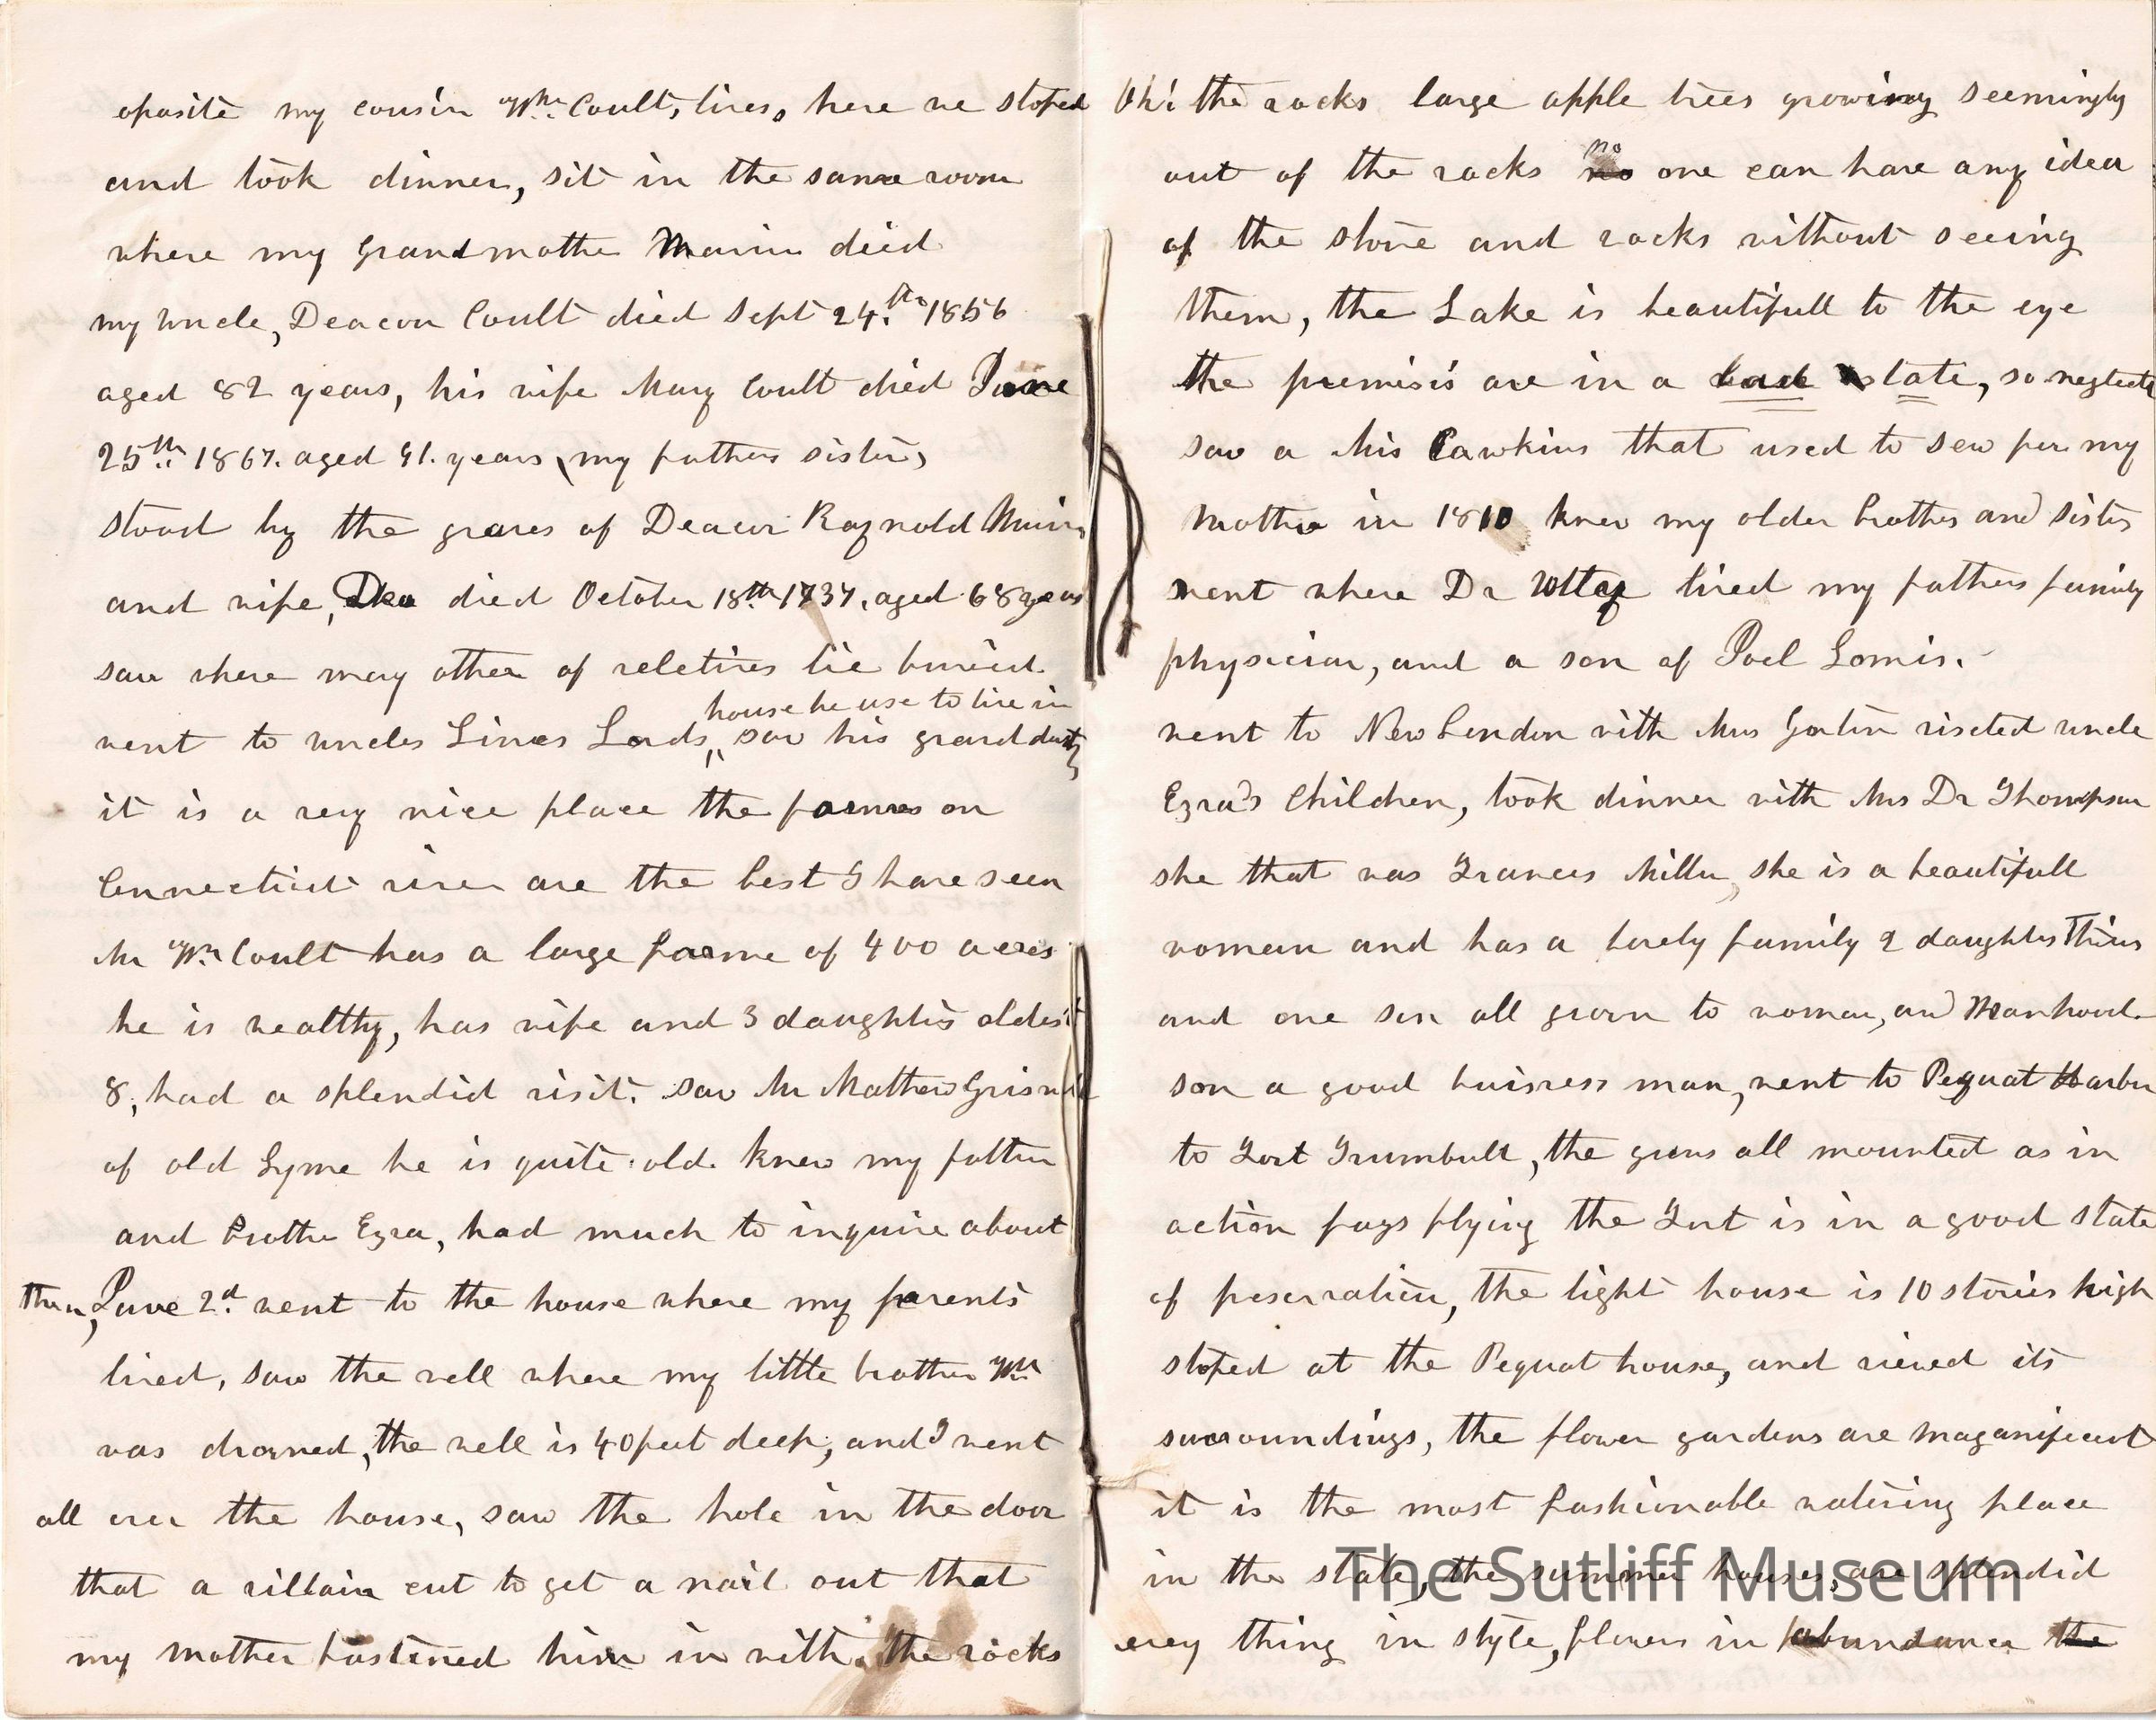 oposite my cousin Wm. Coult, lives, here we stoped
and took dinner, sit in the same room
where my Grandmother Marvin died
my uncle, Deacon Coult died Sept 24.th 1856
aged 82 years, his wife Mary Coult died June
25th 1867. aged 91. years, my fathers sister,
stood by the graves of Deacon Raynold Marvin
and wife, died October 18th 1737, aged 68 years
saw where many other of reletives lie buried.
house he use to live in
went to uncles Lines Lords, saw his grand
it is a very nice place the farmes on
Connecticut river are the best I have seen
Mr Wm. Coult has a large farme of 400 acres
he is wealthy, has wife and 3 daughters oldest
8, had a splendid visit. saw Mr Mathew Griswold
of old Lyme he is quite old. knew my father
and Brother Ezra, had much to inquire about
them, June 2d. went to the house where my parents
lived, saw the well where my little brother Wm
was drowned, the well is 40 feet deep, and I went
all over the house, saw the hole in the door
that a villain cut to get a nail out that
my mother fastened him in with. the rocks
Oh! the rocks large apple trees growing seemingly
out of the rocks no one can have any idea
of the stone and rocks without seeing
them, the Lake is beautifull to the eye
the premisis are in a bad state, so neglected
saw a Mis Cawkins that used to sew for my
Mother in 1810 knew my older brother and sister
went where Dr lived my fathers family
physician, and a son of Joel Lomis.
went to New London with Mrs Gorton viseted uncle
Ezra's Children, took dinner with Mrs Dr Thompson
she that was Frances Miller, she is a beautifull
woman and has a lovely family 2 daughters
and one son all grown to woman, and Manhood
son a good buisness man, went to Pequat Harbor
to Fort Trumbull, the guns all mounted as in
action fags flying the Fort is in a good state
of preservation, the light house is 10 stories high
stoped at the Pequat house, and viewed its
surroundings, the flower gardens are maganificent
it is the most fashionable watering place
in the state, the summer houses, are splendid
every thing in style, flowers in abundance the
The Sutliff Museum